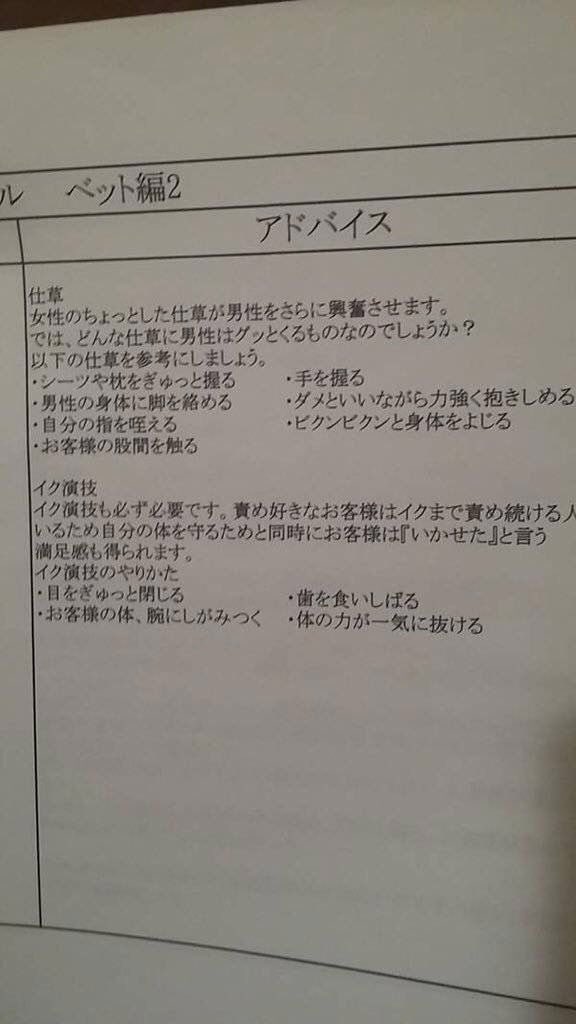 ル ベット編2
アドバイス
仕草
女性のちょっとした仕草が男性をさらに興奮させます。
では、どんな仕草に男性はグッとくるものなのでしょうか？
以下の仕草を参考にしましょう。
・シーツや枕をぎゅっと握る ・手を握る
・男性の身体に脚を絡める ・ダメといいながら力強く抱きしめる
・自分の指を咥える ・ビクンビクンと身体をよじる
・お客様の股間を触る
イク演技
イク演技も必ず必要です。責め好きなお客様はイクまで責め続ける人
いるため自分の体を守るためと同時にお客様は『いかせた』と言う
満足感も得られます。
イク演技のやりかた
・目をぎゅっと閉じる ・歯を食いしばる
・お客様の体、腕にしがみつく ・体の力が一気に抜ける